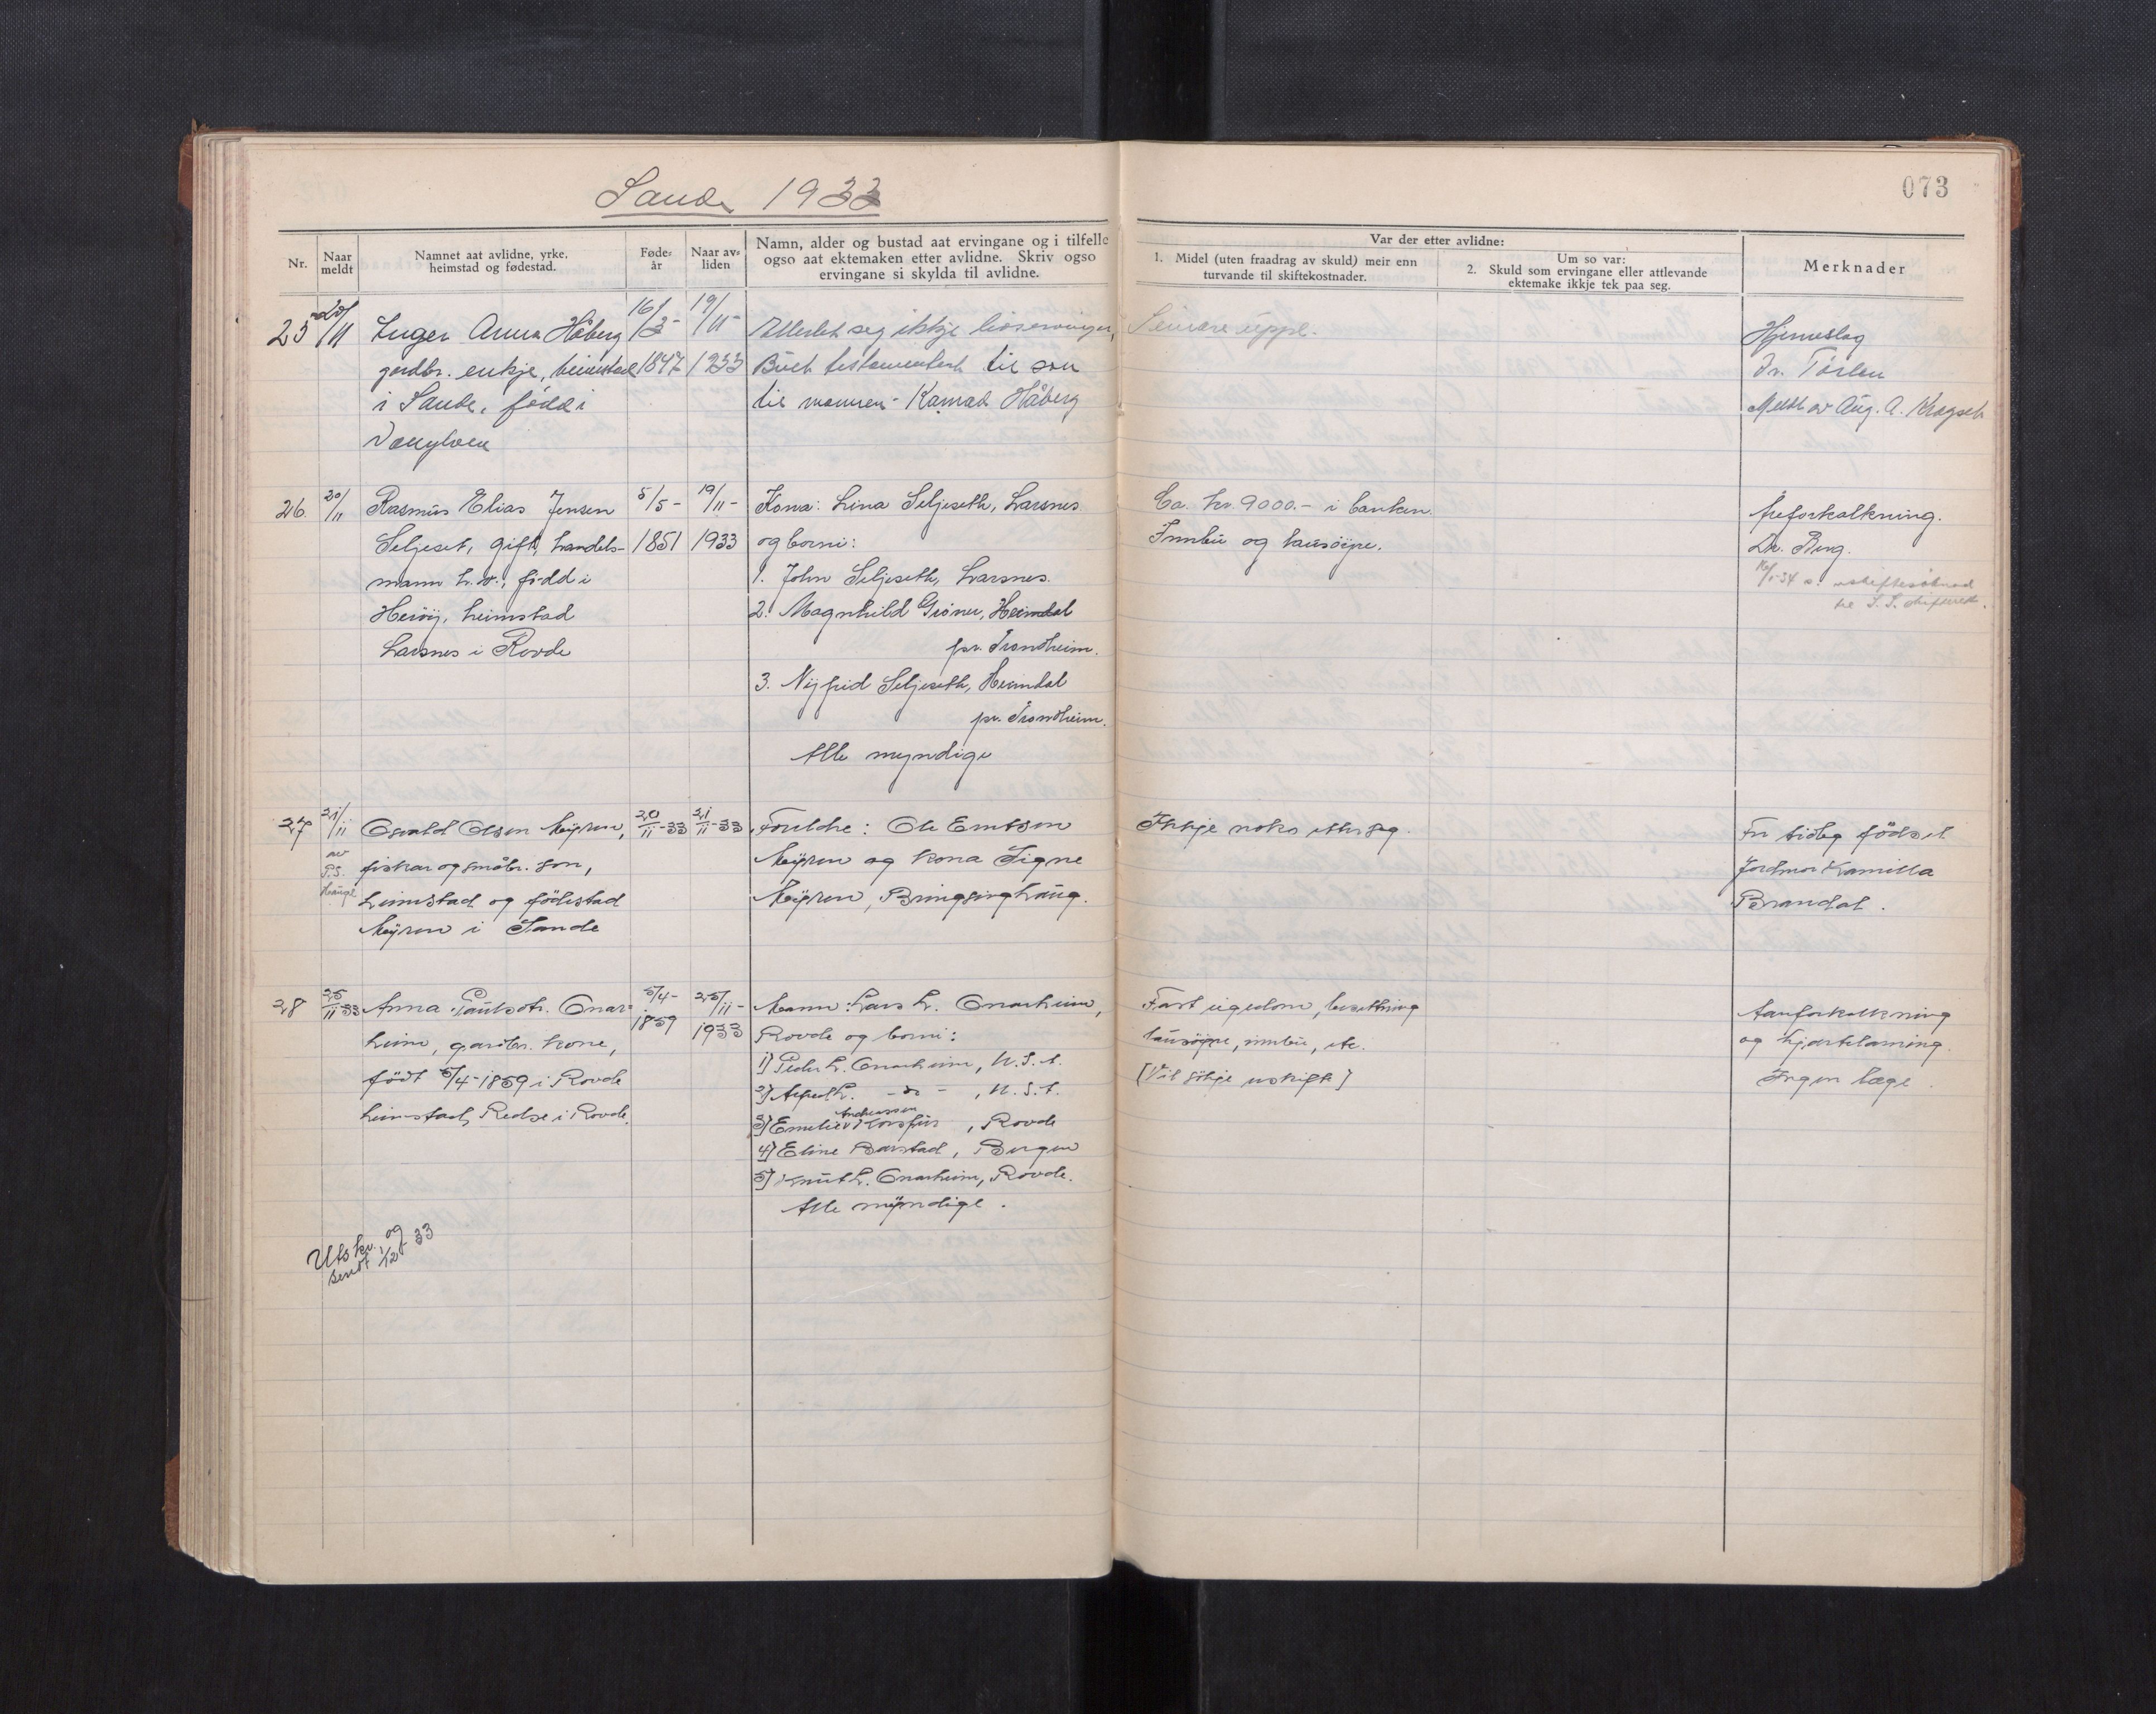 Sande 1933
073
Nr.
Naar meldt
Namnet aat avlidne, yrke, heimstad og fødestad.
Føde-år
Naar av-liden
Namn, alder og bustad aat ervingane og i tilfelle
ogso aat ektemaken etter avlidne. Skriv ogso
ervingane si skylda til avlidne.
Var der etter avlidne:
1. Midel (uten fraadrag av skuld) meir enn
turvande til skiftekostnader.
Um so var:
2. Skuld som ervingane eller attlevande
ektemake ikkje tek paa seg.
Merknader
25 20/11 Inger Anna Håberg 16/3- 19/11- Etterlet seg ikkje livservingar, Seinare uppl. Hjerneslag
gardbr. enkje, heimstad 1847 1933 Buet testamentert til son Dr. Tørlen
i Sande, född i til mannen - Konrad Håberg Meldt av Aug. A. Kragset
Vanylven
26. 20/11 Rasmus Elias Jensen 5/5- 19/11- Kona: Lina Seljeseth, Larsnes Ca. kr. 9000.- i banken. Åreforkalkning.
Seljeset, gift, handels- 1851 1933 og borni: Innbu og lausöyre. Dr. Berg.
mann h.v., född i 1. John Seljeseth, Larsnes. 16/1-34 s.
Heröy, heimstad 2. Magnhild Gröner, Heimdal
Larsnes i Rovde pr. Trondheim.
3. Nyfrid Seljeseth, Heimdal
pr. Trondheim.
Alle myndige
27 21/11 Osvald Olsen Möyren, 20/11-33 21/11-33 Foreldre: Ole Emtsen Ikkje noko etter seg. For tidleg födsel
av P.S. Hauge fiskar og småbr. son, Möyren og kona Signe Jordmor Kamilla
heimstad og födestad Möyren, Bringsinghaug. Brandal.
Möyren i Sande
28 25/11-33 Anna Paulsdtr. Onar- 5/4- 25/11- Mann: Lars L. Onarheim, Fast eigedom, besettning Aarforkalkning
heim, gardbr. kone, 1859 1933 Rovde og borni: lausöyre, innbu, etc. og hjartelaming.
födt 5/4-1859 i Rovde 1) Peder L. Onarheim, U.S.A. [Vil sökje uskifte] Ingen læge.
heimstad, Redse i Rovde. 2) Alfred L. -do- , U.S.A.
Andreassen
3) Emelie Korsfur , Rovde
4) Eline Barstad, Bergen
5) Knut L. Onarheim, Rovde.
Alle myndige.
Utskr. og
sendt 1/12-33